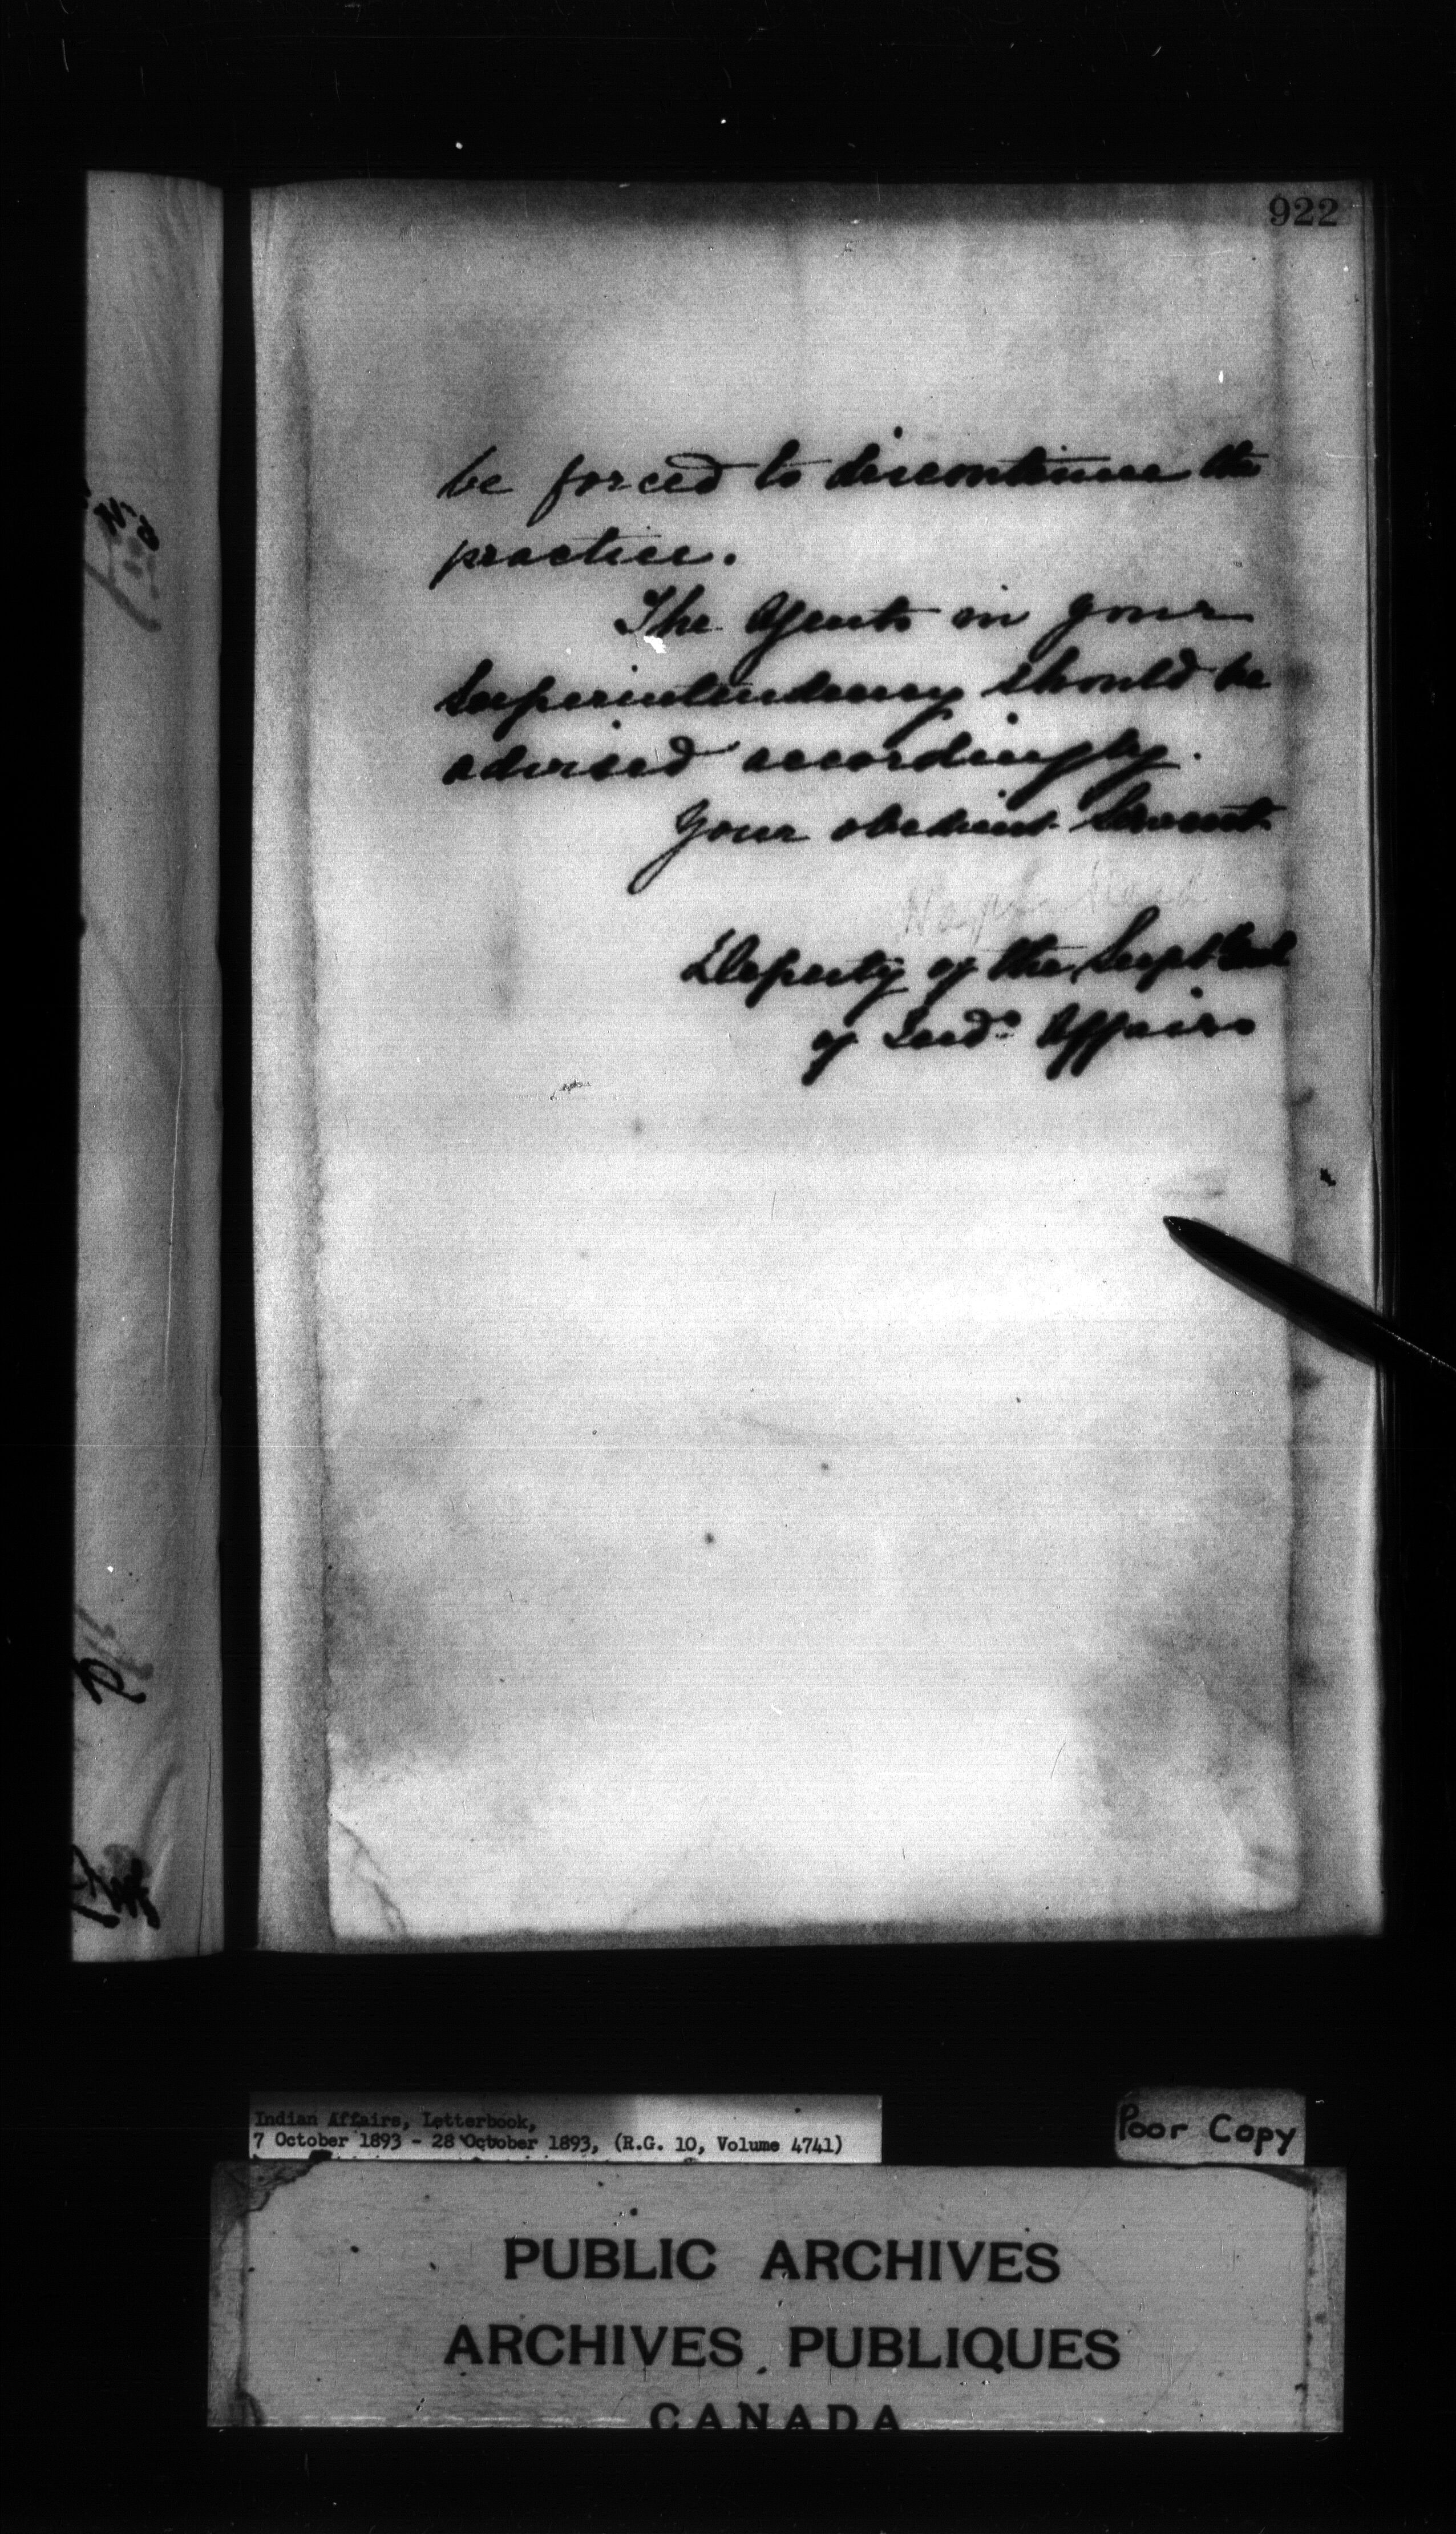 922
be forced to discontinue the
practice.
The Agents in your
Superintendency should be
advised accordingly.
Your obedient Servant
Hayter Reed
Deputy of the Supt Genl
of Indn Affairs
Indian Affairs, Letterbook,
7 October 1893 - 28 October 1893, (R.G. 10, Volume 4741)
Poor Copy
PUBLIC ARCHIVES
ARCHIVES PUBLIQUES
CANADA